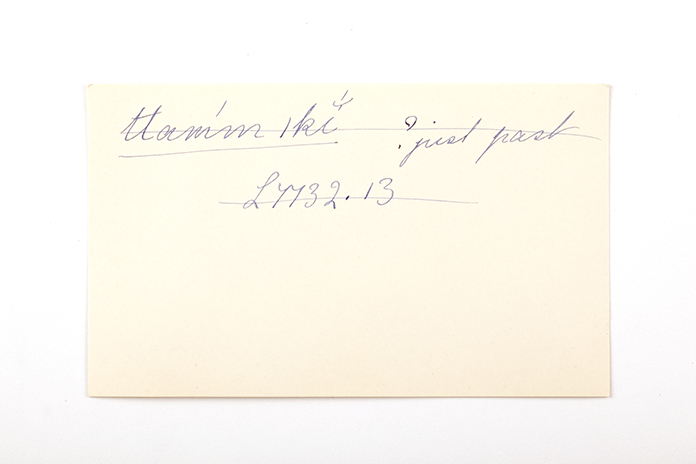 ttanim ikí ? just past
L7732.13